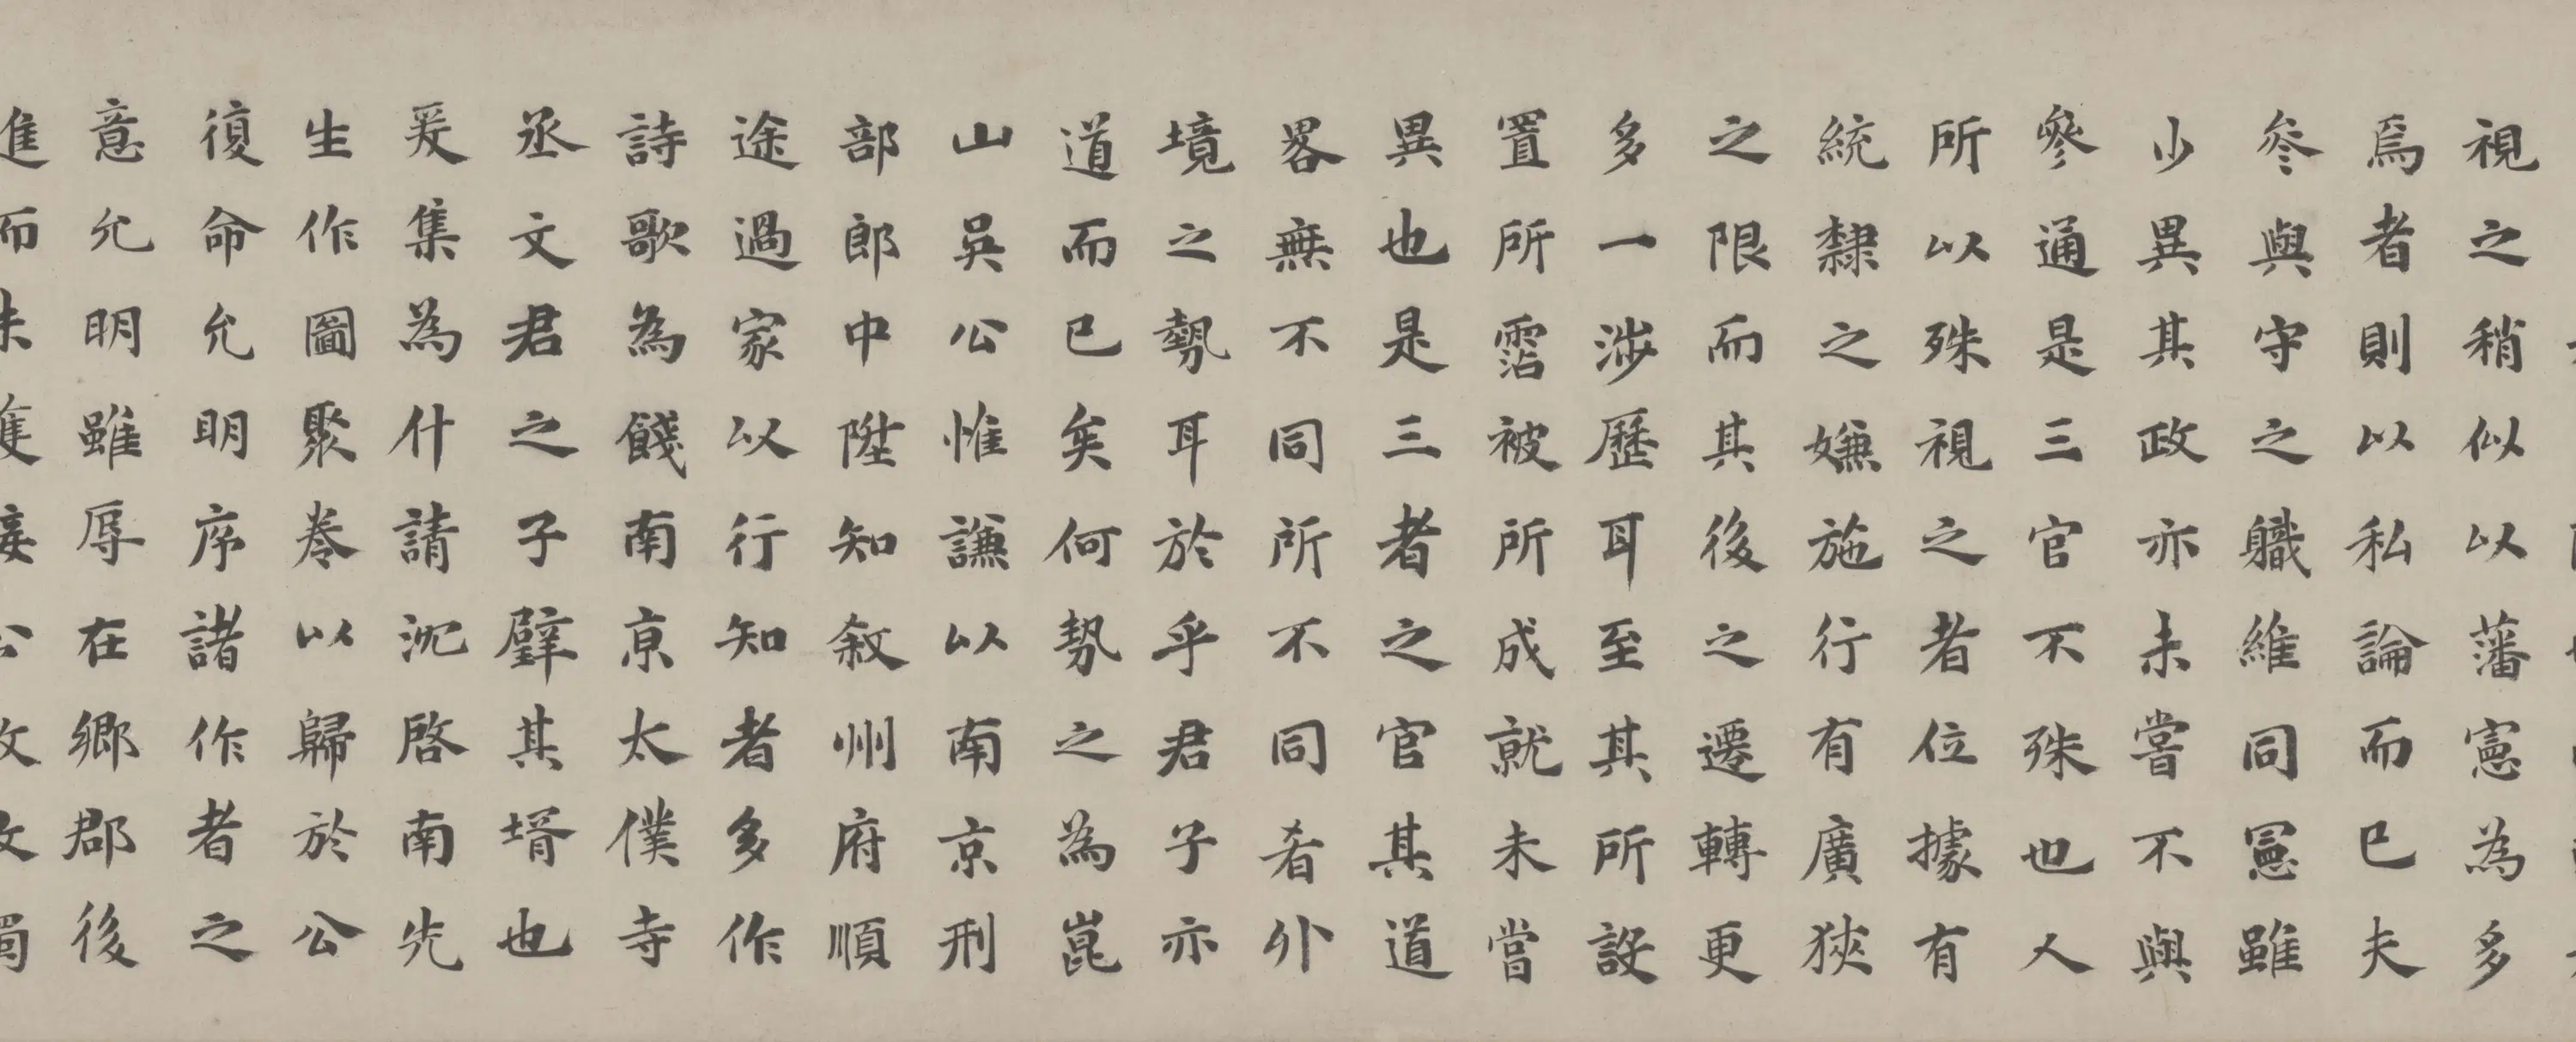 視之稍似以藩憲為多
焉者則以私論而已夫
叅與守之軄維同冨雖
少異其政亦未嘗不與
參通是三官不殊也人
所以殊視之者位據有
統隸之嫌施行有廣狹
之限而其後之遷轉更
多一涉歷耳至其所設
置所霑被所成就未嘗
異也是三者之官其道
畧無不同所不同者外
境之勢耳於乎君子亦
道而已矣何勢之為崑
山吳公惟謙以南京刑
部郎中陞知敘州府順
途過家以行知者多作
詩歌為餞南京太僕寺
丞文君之子壁其壻也
爰集為什請沈啓南先
生作圖聚卷以歸於公
復命允明序諸作者之
意允明雖辱在鄉郡後
進而未獲接